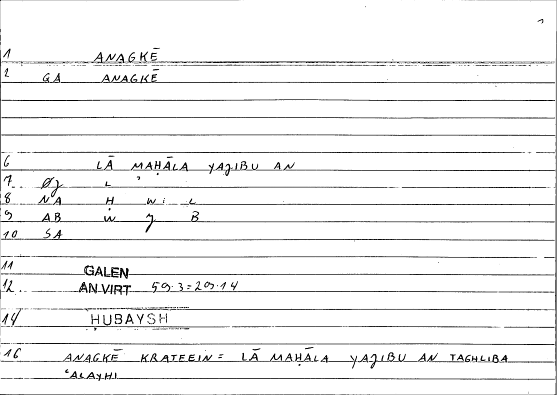 1 ANAGKĒ
2 GA ANAGKĒ
6 LĀ MAḤĀLA YAJIBU AN
7 ØJ L ʾ
8 NA Ḥ W L
9 AB W J B
10 SA
11 GALEN
12 AN VIRT 59.3=209.14
14 ḤUBAYSH
16 ANAGKĒ KRATEEIN = LĀ MAḤĀLA YAJIBU AN TAGHLIBA
ʿALAYHI